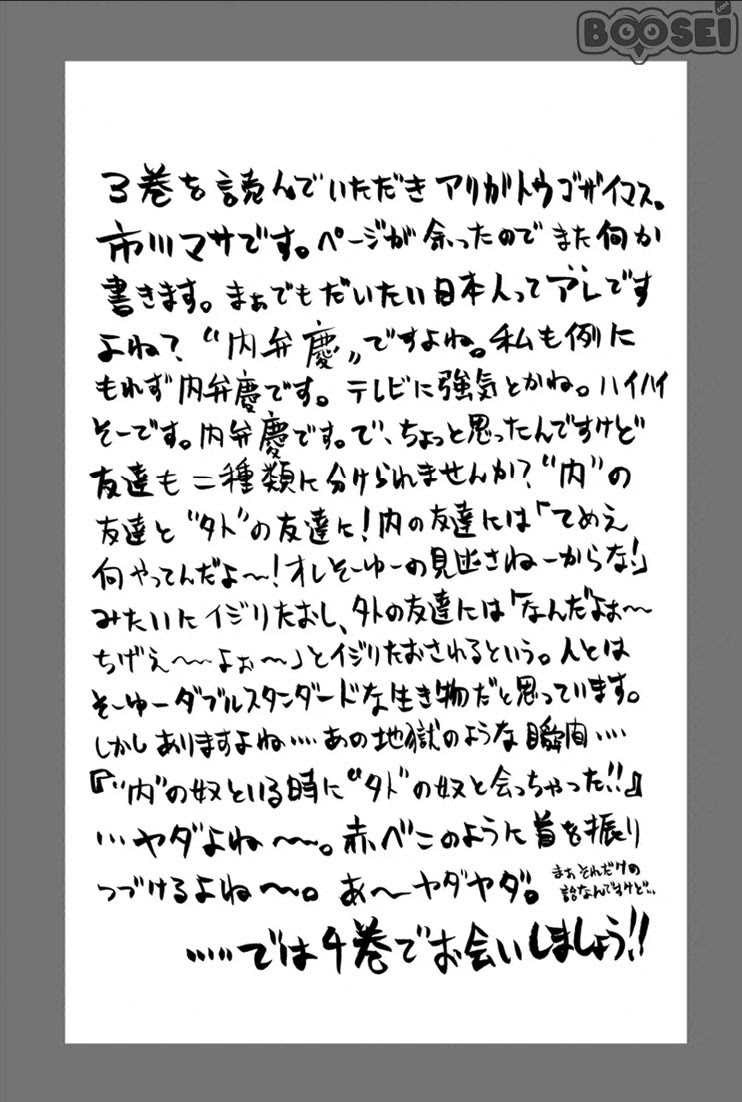 BOOSEI
.com
3巻を読んでいただきアリガトウゴザイマス。
市川マサです。ページが余ったのでまた何か
書きます。まぁでもだいたい日本人ってアレです
よね?“内弁慶„ですよね。私も例に
もれず内弁慶です。テレビに強気とかね。ハイハイ
そーです。内弁慶です。で、ちょっと思ったんですけど
友達も二種類に分けられませんか?“内”の
友達と“外”の友達に!内の友達には「てめえ
何やってんだよ〜!オレそーゆーの見逃さねーからな!」
みたいにイジりたおし、外の友達には「なんだよぉ〜
ちげえ〜〜よぉ〜」とイジりたおされるという。人とは
そーゆーダブルスタンダードな生き物だと思っています。
しかしありますよね‥‥あの地獄のような瞬間‥‥
『“内”の奴といる時に“外”の奴と会っちゃった!!』
…ヤダよね〜〜。赤べこのように首を振り
つづけるよね〜〜。あ〜ヤダヤダ。
まぁそれだけの
話なんですけど…
……では4巻でお会いしましょう!!